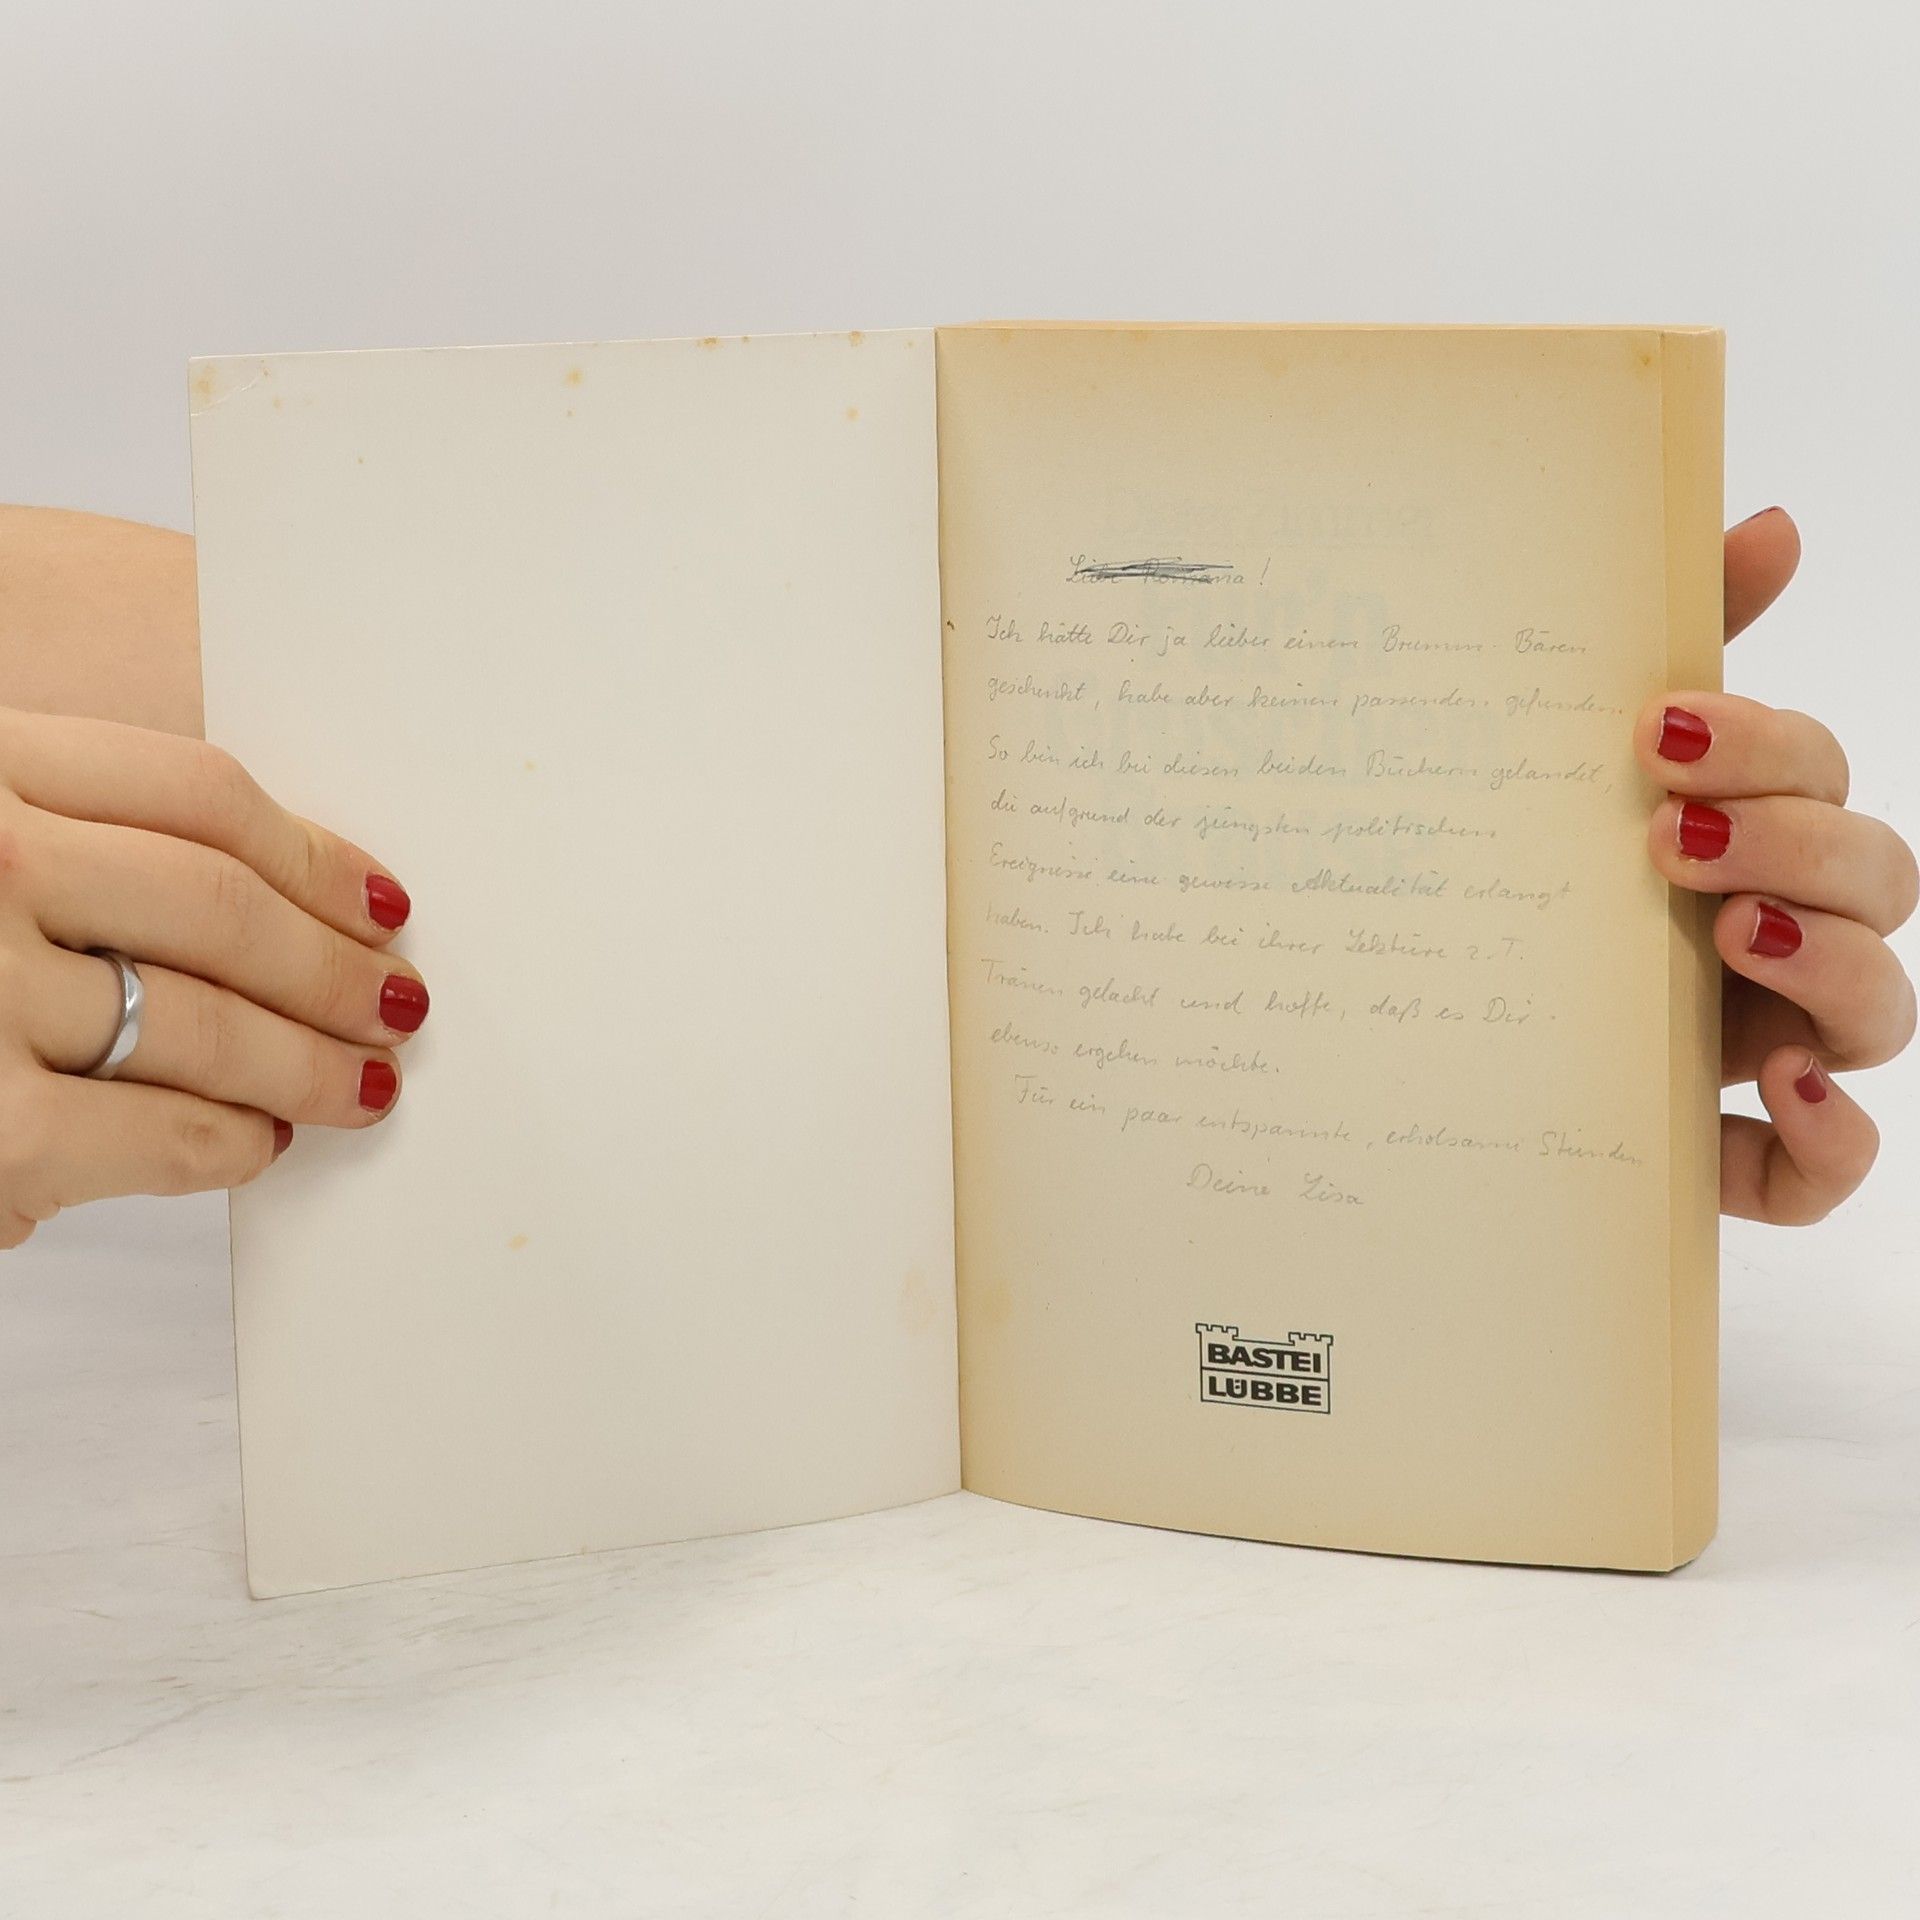 Liebe Romana!
Ich hätte Dir ja lieber einen Brumm-Bären
geschenkt, habe aber keinen passenden gefunden.
So bin ich bei diesen beiden Büchern gelandet,
die aufgrund der jüngsten politischen
Ereignisse eine gewisse Aktualität erlangt
haben. Ich habe bei ihrer Lektüre z.T.
Tränen gelacht und hoffe, daß es Dir
ebenso ergehen möchte.
Für ein paar entspannte, erholsame Stunden
Deine Lisa
BASTEI
LÜBBE